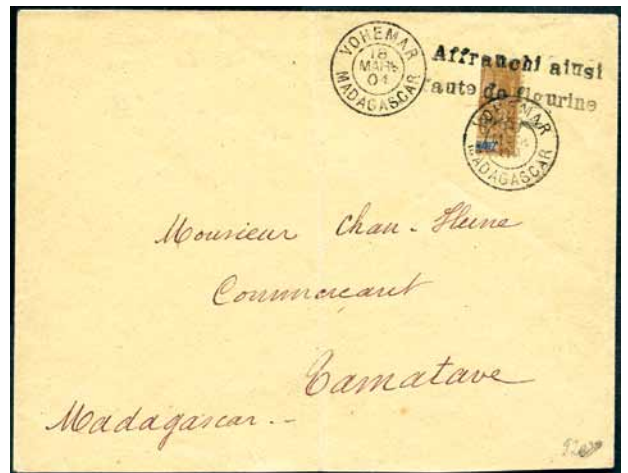 VOHEMAR
18
MARS
04
MADAGASCAR
Affranchi ainsi
faute de figurine
VOHEMAR
MADAGASCAR
Monsieur Chan-Heine
Commerçant
Tamatave
Madagascar.-